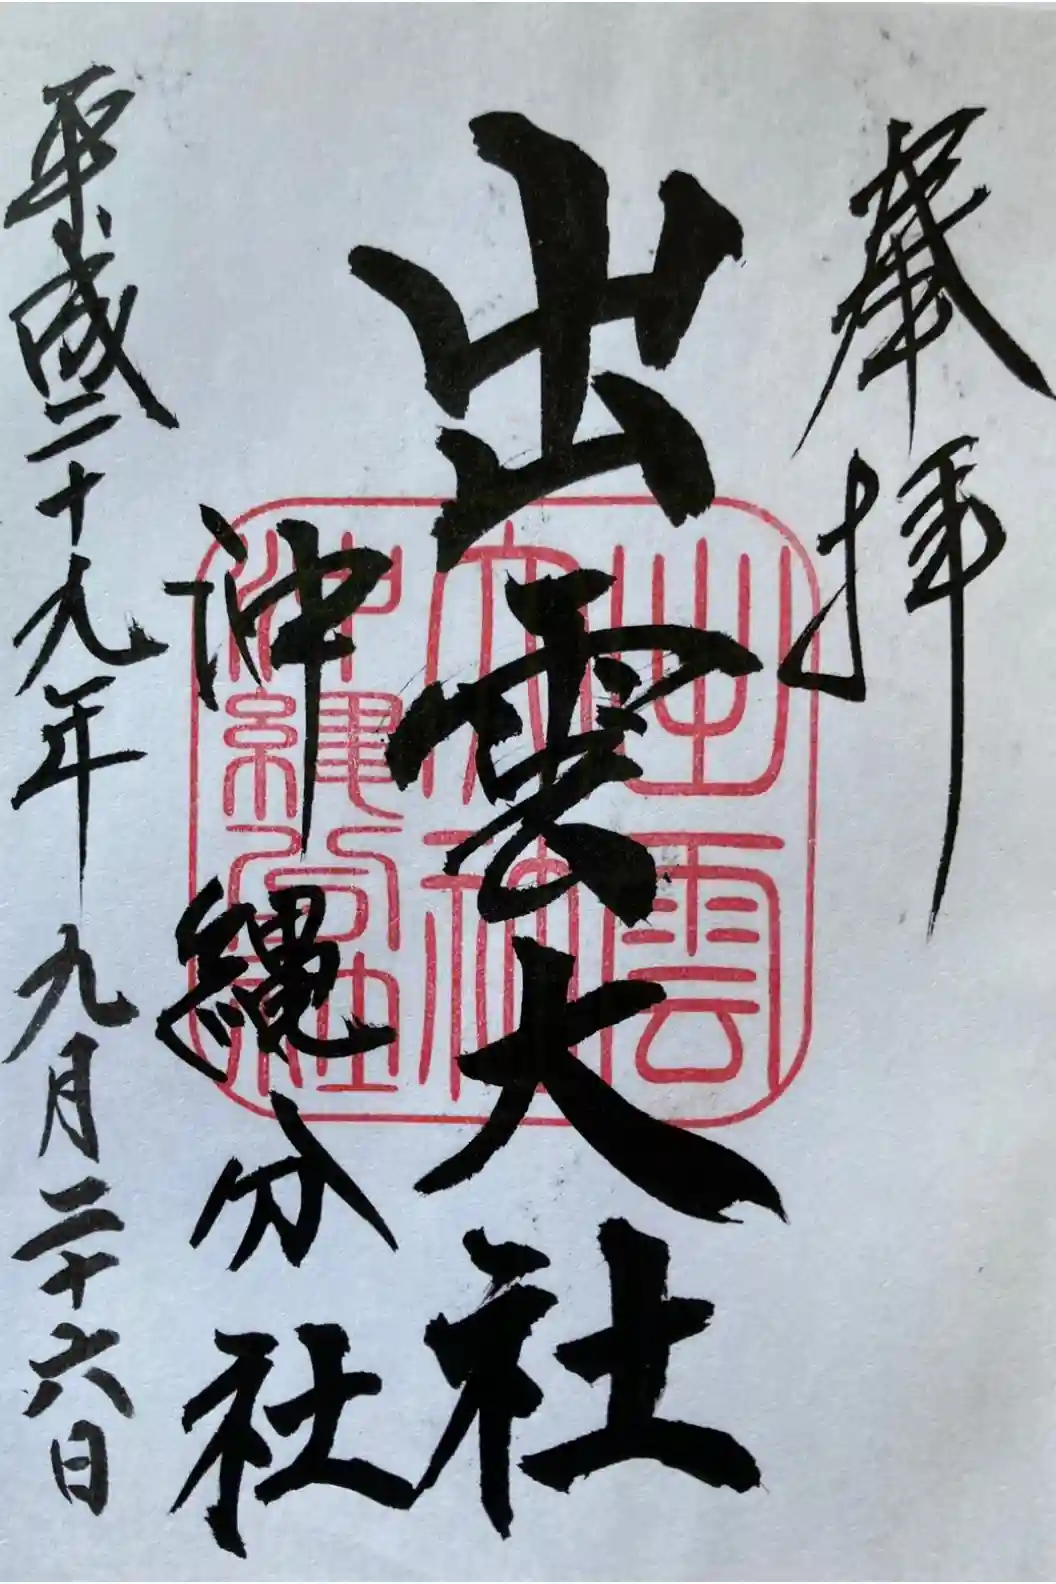 奉拝
出雲大社
沖縄分社
平成二十九年九月二十六日
出雲
大社
沖縄分社